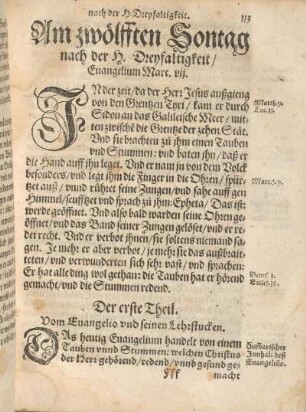 nach der H Dreyfaltigkeit. 113
Am zwölfften Sontag
nach der H. Dreyfaltigkeit/
Euangelium Marc. vij.
IN der zeit/da der Herr Jesus außgieng
von den Grentzen Tyri/ kam er durch
Sidon an das Galileische Meer/ mit-
ten zwischē die Grentze der zehen Stät.
Vnd sie brachten zů ihm einen Tauben
vnd Stummen: vnd baten ihn/ daß er
die Hand auff ihn leget. Vnd er nam jn von dem Volck
besonders/ vnd legt ihm die Finger in die Ohren/ spü-
tzet auß/ vnnd rühret seine Zungen/ vnd sahe auff gen
Himmel/seufftzet vnd sprach zů jhm: Epheta/ Das ist:
werde geöffnet. Vnd also bald warden seine Ohren ge-
öffnet/vnd das Band seiner Zungen gelöset/ vnd er re-
det recht. Vnd er verbot ihnen/ sie soltens niemand sa-
gen. Je mehr er aber verbot/ je mehr sie das außbrait-
teten/ vnd verwunderten sich sehr vast/ vnd sprachen:
Er hat alle ding wol gethan: die Tauben hat er hörend
gemacht/vnd die Stummen redend.
Marc. 5.
Der erste Theil.
Vom Euangelio vnd seinen Lehrstucken.
DAs heutig Euangelium handelt von einem
Tauben vnnd Stummen: welchen Christus
der Herr gehörend/ redend/ vnnd gesund ge-
Summarischer
Innhalt deß
Euangelĳs.
fff macht